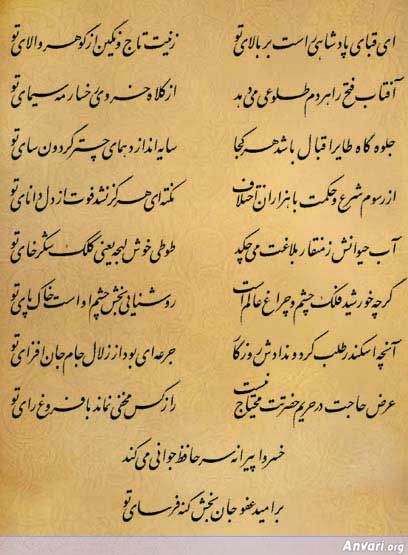 ای قبای پادشاهی راست بر بالای تو زینت تاج و نگین از گوهر والای تو
آفتاب فتح را هر دم طلوعی می‌دهد از کلاه خسروی رخسار مه سیمای تو
جلوه گاه طایر اقبال باشد هر کجا سایه اندازد همای چتر گردون سای تو
از رسوم شرع و حکمت با هزاران اختلاف نکته‌ای هرگز نشد فوت از دل دانای تو
آب حیوانش ز منقار بلاغت می‌چکد طوطی خوش لهجه یعنی کلک شکرخای تو
گرچه خورشید فلک چشم و چراغ عالم است روشنایی بخش چشم اوست خاک پای تو
آنچه اسکندر طلب کرد و ندادش روزگار جرعه‌ای بود از زلال جام جان افزای تو
عرض حاجت در حریم حضرتت محتاج نیست راز کس مخفی نماند با فروغ رای تو
خسروا پیرانه سر حافظ جوانی می‌کند
بر امید عفو جان بخش گنه فرسای تو
Anvari.org